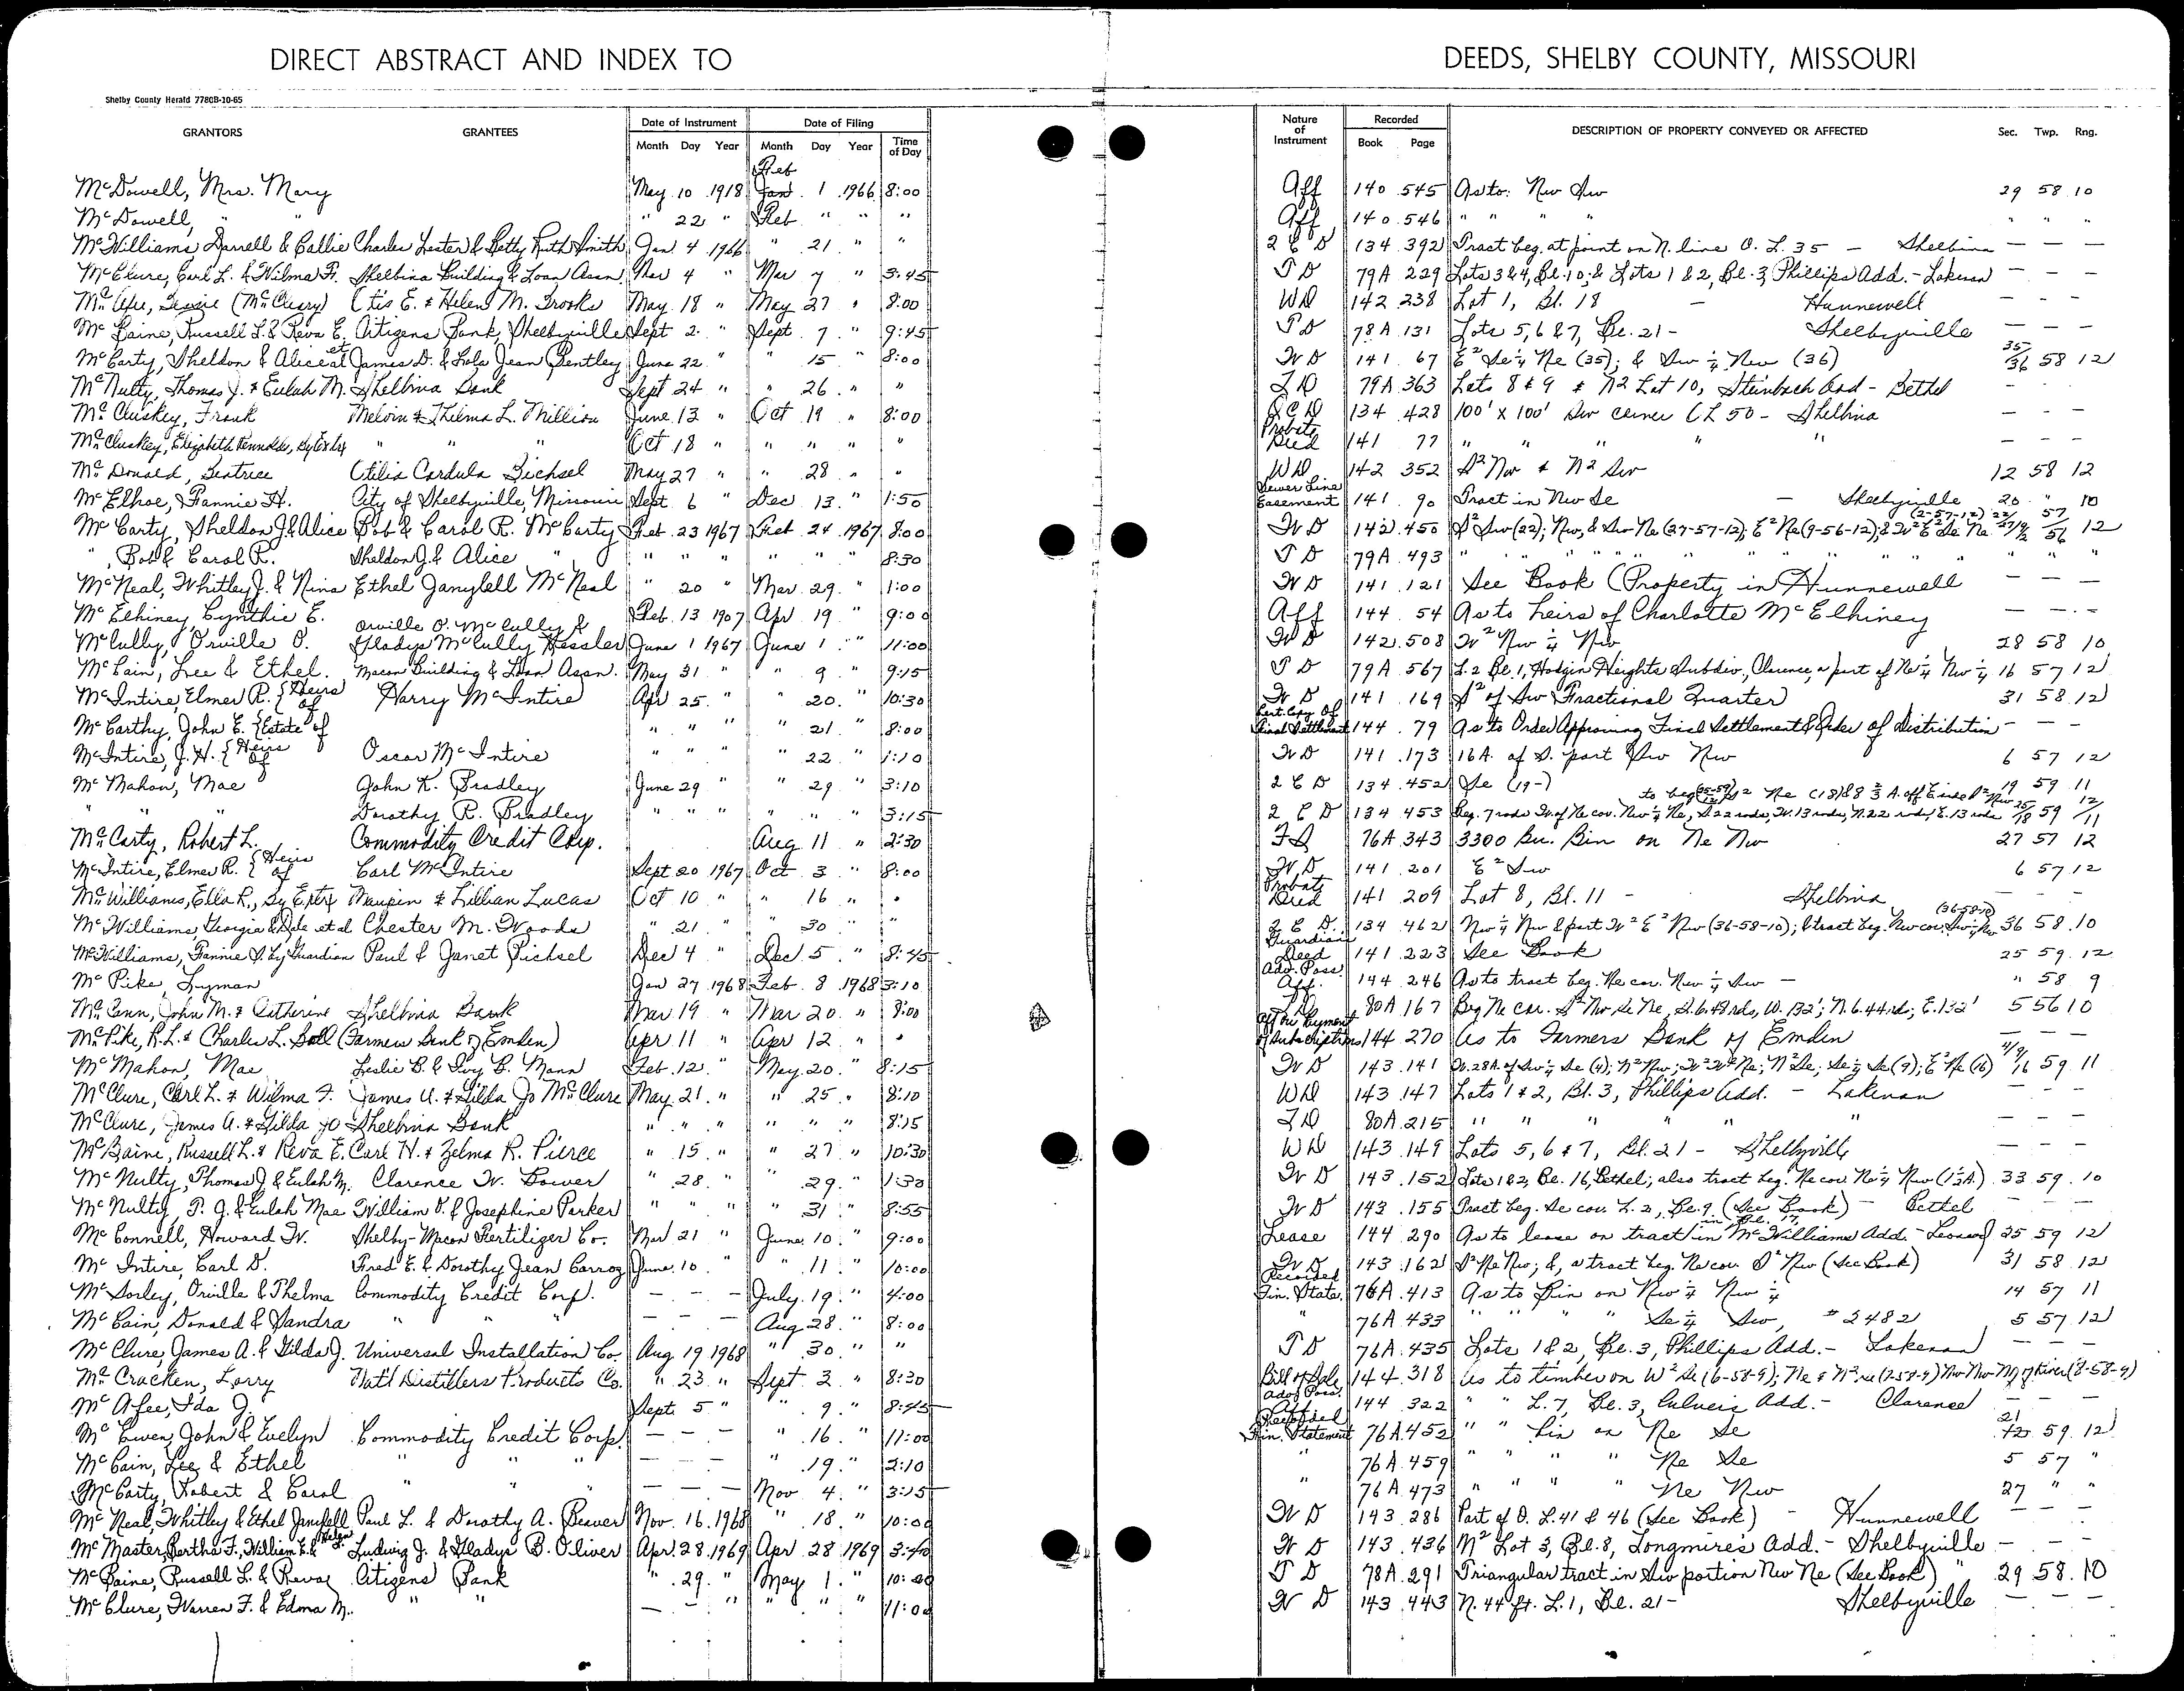 DIRECT ABSTRACT AND INDEX TO DEEDS, SHELBY COUNTY, MISSOURI
Shelby County Herald 7780B-10-65
GRANTORS GRANTEES Date of Instrument Month Day Year Date of Filing Month Day Year Time of Day Nature of Instrument Recorded Book Page DESCRIPTION OF PROPERTY CONVEYED OR AFFECTED Sec. Twp. Rng.
McDowell, Mrs. Mary May 10 1918 Feb 1 1966 8:00 Aff 140 545 As to: Nw Sw 29 58 10
McDowell, " " " 22 " Feb " " " Aff 140 546 " " " " " " "
McWilliams Darrell & Callie Charles Lester & Betty Ruth Smith Jan 4 1966 " 21 " " Q C D 134 392 Tract beg. at point on N. line O. L. 35 - Shelbina — — —
McClure, Carl L. & Wilma F. Shelbina Building & Loan Assn. Mar 4 " Mar 7 " 3:45 T D 79A 229 Lots 3 & 4, Bl. 10; & Lots 1 & 2, Bl. 3, Phillips Add. - Lakenan — — —
McAfee, (McCleary) Otis E. & Helen M. Brooks May 18 " May 27 " 8:00 WD 142 238 Lot 1, Bl. 18 - Hunnewell — — —
McBaine, Russell L. & Reva E. Citizens Bank, Shelbyville Sept 2 " Sept 7 " 9:45 T D 78A 131 Lots 5, 6 & 7, Bl. 21 - Shelbyville — — —
McCarty, Sheldon & Alice et al James D. & Lola Jean Bentley June 22 " " 15 " 8:00 W D 141 67 E2 Se¼ Ne (35); & Sw ¼ Nw (36) 35/36 58 12
McNulty, Thomas J. & Eulah M. Shelbina Bank Sept 24 " " 26 " " T D 79A 363 Lots 8 & 9 & N2 Lot 10, Steinbach Add - Bethel — — —
McCluskey, Frank Melvin & Thelma L. Million June 13 " Oct 19 " 8:00 Q C D 134 428 100' x 100' Sw corner OL 50 - Shelbina — — —
McCluskey, Elizabeth Reynolds, By Extrx " " " Oct 18 " " " " " Probate Deed 141 77 " " " " " — — —
McDonald, Beatrice Otilia Cordula Bichsel May 27 " " 28 " " WD 142 352 S2 Nw & N2 Sw 12 58 12
McElhoe, Fannie H. City of Shelbyville, Missouri Sept 6 " Dec 13 " 1:50 Sewer Line Easement 141 90 Tract in Nw Se - Shelbyville 20 " 10
McCarty, Sheldon J. & Alice Bob & Carol R. McCarty Feb 23 1967 Feb 24 1967 8:00 W D 142 450 S2 Sw (22); Nw, & Sw Ne (27-57-12); E2 Ne (9-56-12); & W2 E2 Se Ne (2-57-12) 57/56 12
" , Bob & Carol R. Sheldon J. & Alice " " " " " " " 8:30 T D 79A 493 " " " " " " " " " "
McNeal, Whitley J. & Nina Ethel Jamybell McNeal " 20 " Mar 29 " 1:00 W D 141 121 See Book (Property in Hunnewell — — —
McElhiney Cynthie E. Feb 13 1907 Apr 19 " 9:00 Aff 144 54 As to heirs of Charlotte McElhiney — — —
McCully, Orville O. Orville O. McCully & Gladys McCully Hessler June 1 1967 June 1 " 11:00 W D 142 508 W2 Nw ¼ Nw 28 58 10
McCain, Lee & Ethel. Macon Building & Loan Assn. May 31 " " 9 " 9:15 T D 79A 567 L. 2 Bl. 1, Hodgin Heights Subdiv., Clarence, a part of Ne ¼ Nw ¼ 16 57 12
McIntire, Elmer R. {Heirs of Harry McIntire Apr 25 " " 20 " 10:30 W D 141 169 S2 of Sw Fractional Quarter 31 58 12
McCarthy, John E. {Estate of " " " " 21 " 8:00 Cert. Copy Of Final Settlement 144 79 As to Order Approving Final Settlement & Order of Distribution — — —
McIntire, J. H. {Heirs of Oscar McIntire " " " " 22 " 1:10 W D 141 173 16 A. of S. part Sw Nw 6 57 12
McMahon, Mae John K. Bradley June 29 " " 29 " 3:10 Q C D 134 452 Se (19-) 19 59 11
" " Dorothy R. Bradley " " " " " " 3:15 Q C D 134 453 Beg. 7 rods W. of Ne cor. Nw ¼ Ne, S. 22 rods, W. 13 rods, N. 22 rods, E. 13 rods to beg (25-59-12); S2 Ne (18) & 8 ⅔ A. off E side S2 Nw 25/18 59 12/11
McCarty, Robert L. Commodity Credit Corp. Aug 11 " 2:30 FS 76A 343 3300 Bu. Bin on Ne Nw 27 57 12
McIntire, Elmer R. {Heirs of Carl McIntire Sept 20 1967 Oct 3 " 8:00 W D 141 201 E2 Sw 6 57 12
McWilliams, Ella R., By Extrx Maupin & Lillian Lucas Oct 10 " " 16 " " Probate Deed 141 209 Lot 8, Bl. 11 - Shelbina — — —
McWilliams, Georgia & Dale et al Chester M. Woods " 21 " " 30 " " Q C D 134 462 Nw ¼ Nw & part W2 E2 Nw (36-58-10); & tract beg. Nw cor. Sw ¼ Nw (36-58-10) 36 58 10
McWilliams, Fannie S. by Guardian Paul & Janet Bichsel Dec 4 " Dec 5 " 8:45 Guardian Deed 141 223 See Book 25 59 12
McPike, Lyman Jan 27 1968 Feb 8 1968 3:10 Adv. Poss. Aff. 144 246 As to tract beg. Ne cor. Nw ¼ Sw - " 58 9
McCann, John M. & Catherine Shelbina Bank Mar 19 " Mar 20 " 8:00 T D 80A 167 Beg Ne cor. S2 Nw Se Ne, S. 6.48 rds, W. 132'; N. 6.44 rds; E. 132' 5 56 10
McPike, R.L. & Charles L. Ball (Farmers Bank of Emden) Apr 11 " Apr 12 " " Aff on Payment of Subscriptions 144 270 As to Farmers Bank of Emden — — —
McMahon, Mae Leslie B. & Ivy B. Mann Feb 12 " May 20 " 8:15 W D 143 141 W. 28 A. of Sw ¼ Se (4); N2 Nw; W2 W2 Ne; N2 Se; Se ¼ Se (9); E2 Ne (16) 4/9/16 59 11
McClure, Carl L. & Wilma F. James A. & Gilda Jo McClure May 21 " " 25 " 8:10 WD 143 147 Lots 1 & 2, Bl. 3, Phillips Add. - Lakenan — — —
McClure, James A. & Gilda Jo Shelbina Bank " " " " " " 8:15 T D 80A 215 " " " " " — — —
McBaine, Russell L. & Reva E. Carl H. & Zelma R. Pierce " 15 " " 27 " 10:30 WD 143 149 Lots 5, 6 & 7, Bl. 21 - Shelbyville — — —
McNulty, Thomas J. & Eulah M. Clarence W. Bower " 28 " " 29 " 1:30 W D 143 152 Lots 1 & 2, Bl. 16, Bethel; also tract beg. Ne cor. Ne ¼ Nw (1½ A.) 33 59 10
McNulty, T. J. & Eulah Mae William D. & Josephine Parker " " " " 31 " 8:55 W D 143 155 Tract beg. Se cor. L. 2, Bl. 9 (See Book) - Bethel — — —
McConnell, Howard W. Shelby-Macon Fertilizer Co. Mar 21 " June 10 " 9:00 Lease 144 290 As to lease on tract in Bl. 17, McWilliams Add. - Leonard 25 59 12
McIntire, Carl D. Fred E. & Dorothy Jean Carroz June 10 " " 11 " 10:00 W D 143 162 S2 Ne Nw; &, a tract beg. Ne cor. S2 Nw (See Book) 31 58 12
McSorley, Orville & Thelma Commodity Credit Corp. — — — July 19 " 4:00 Recorded Fin. State. 76A 413 As to Bin on Nw ¼ Nw ¼ 14 57 11
McCain, Donald & Sandra " " " — — — Aug 28 " 8:00 " 76A 433 " " " " Se ¼ Sw, # 2482 5 57 12
McClure, James A. & Gilda J. Universal Installation Co. Aug 19 1968 " 30 " " T D 76A 435 Lots 1 & 2, Bl. 3, Phillips Add. - Lakenan — — —
McCracken, Larry Nat'l Distillers Products Co. " 23 " Sept 3 " 8:30 Bill of Sale 144 318 As to timber on W2 Se (6-58-9); Ne & N2 Se (7-58-9) Nw Nw N. of River (8-58-9)
McAfee, Ida J. Sept 5 " " 9 " 8:45 Adv. Poss. Aff 144 322 " " L. 7, Bl. 3, Culver's Add. - Clarence — — —
McEwen, John & Evelyn Commodity Credit Corp. — — — " 16 " 11:00 Recorded Fin. Statement 76A 452 " " Bin on Ne Se 21 59 12
McCain, Lee & Ethel " " " — — — " 19 " 2:10 " 76A 459 " " " " Ne Se 5 57 "
McCarty, Robert & Carol " " " — — — Nov 4 " 3:15 " 76A 473 " " " " Ne Nw 27 " "
McNeal, Whitley & Ethel Jamybell Paul L. & Dorothy A. Beaver Nov. 16 1968 " 18 " 10:00 W D 143 286 Part of O. L. 41 & 46 (See Book) - Hunnewell — — —
McMaster, Bertha F., William E. & Helen F. Ludwig J. & Gladys B. Oliver Apr 28 1969 Apr 28 1969 3:40 W D 143 436 N2 Lot 3, Bl. 8, Longmire's Add. - Shelbyville — — —
McBaine, Russell L. & Reva E. Citizens Bank " 29 " May 1 " 10:00 T D 78A 291 Triangular tract in Sw portion Nw Ne (See Book) " 29 58 10
McClure, Warren F. & Edma M. " " — — " " " " 11:00 W D 143 443 N. 44 ft. L. 1, Bl. 21 - Shelbyville — — —